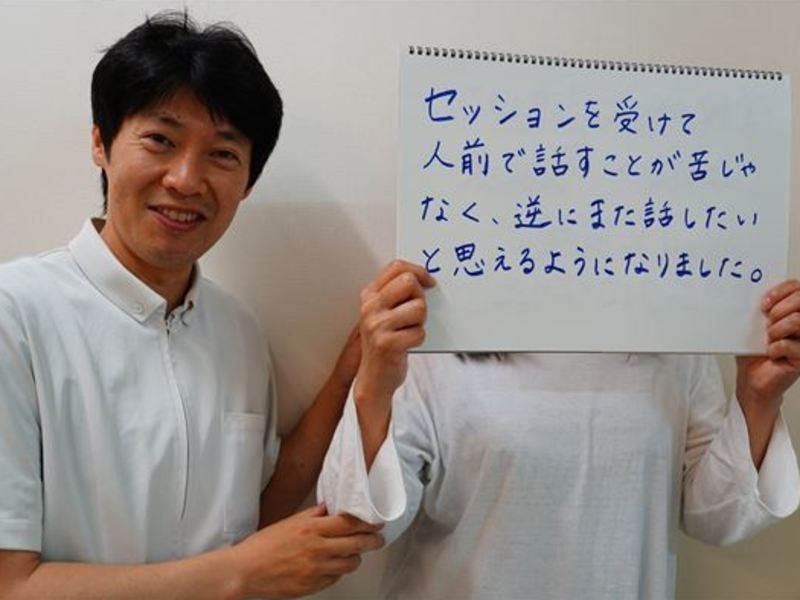 セッションを受けて
人前で話すことが苦じゃ
なく、逆にまた話したい
と思えるようになりました。